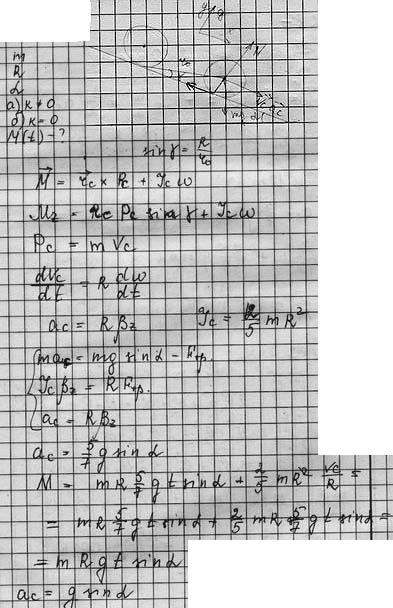 m
R
α
а) k ≠ 0
б) k = 0
M(t) - ?
sin γ = R/r₀
M⃗ = r⃗c × Pc + Jc ω
Mz = rc Pc sin γ + Jc ω
Pc = m Vc
dVc/dt = R dω/dt
ac = R βz Jc = 2/5 m R²
mac = mg sin α - Fтр.
Jc βz = R Fтр.
ac = R βz
ac = 5/7 g sin α
M = m R 5/7 g t sin α + 2/5 m R² Vc/R =
= m R 5/7 g t sin α + 2/5 m R 5/7 g t sin α =
= m R g t sin α
ac = g sin α